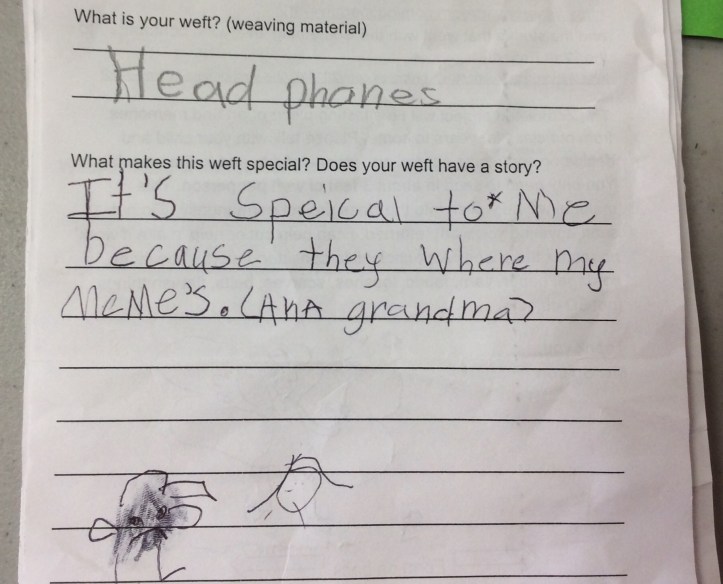 What is your weft? (weaving material)
Head phones
What makes this weft special? Does your weft have a story?
It's Speical to* Me
because they where my
MeMe's. (AKA grandma)